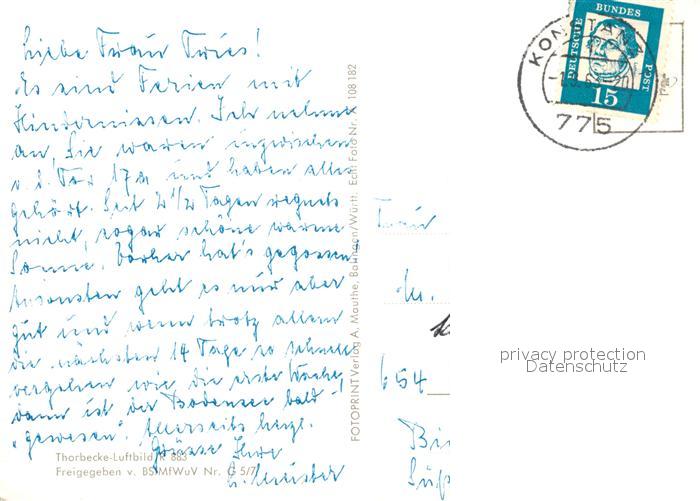 Liebe Frau Fries!
Es sind Ferien mit
Hindernissen. Ich nehme
an, Sie waren inzwischen
17a und haben alles
gehört. Seit 2 1/2 Tagen regnets
nicht, sogar schöne warme
Sonne. Vorher hat's gegossen.
Ansonsten geht es nur aber
gut und wenn trotz allem
die nächsten 14 Tage so schnell
vergehen wie die erste Woche,
dann ist der Bodensee bald
"gewesen". Allerseits herzl.
Grüsse Ihre
Thorbecke-Luftbild R 883
Freigegeben v. BSMfWuV Nr. G 5/7
FOTOPRINT Verlag A. Mauthe, Balingen/Württ. Echt Foto Nr. K 108 182
DEUTSCHE BUNDES POST
15
KONSTANZ
775
Frau
654
privacy protection
Datenschutz